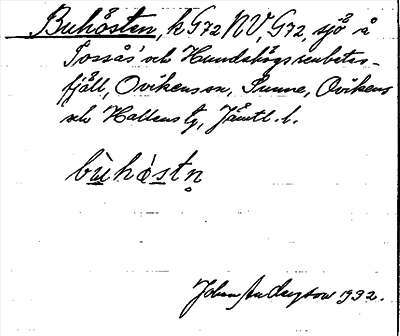 Buhösten, k G72 NV, G72, sjö å
Tossås' och Hundshögs renbetes-
fjäll, Ovikens sn, Sunne, Ovikens
och Hallens tg, Jämtl. l.
bùhȯ́stn̥
Johan Anderson 1932.